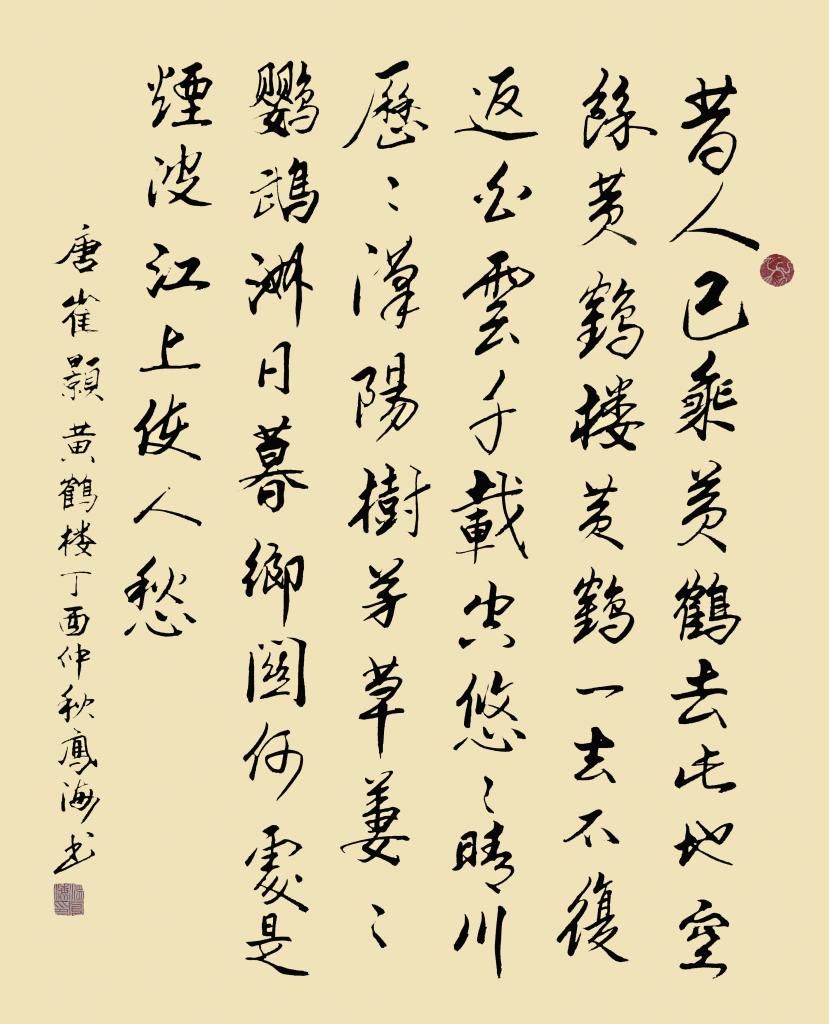 昔人已乘黄鶴去此地空
餘黄鶴楼黄鶴一去不復
返白雲千載空悠〻晴川
歷〻漢陽樹芳草萋〻
鹦鹉洲日暮鄉關何處是
煙波江上使人愁
唐崔顥黄鶴楼丁酉仲秋鳳海书